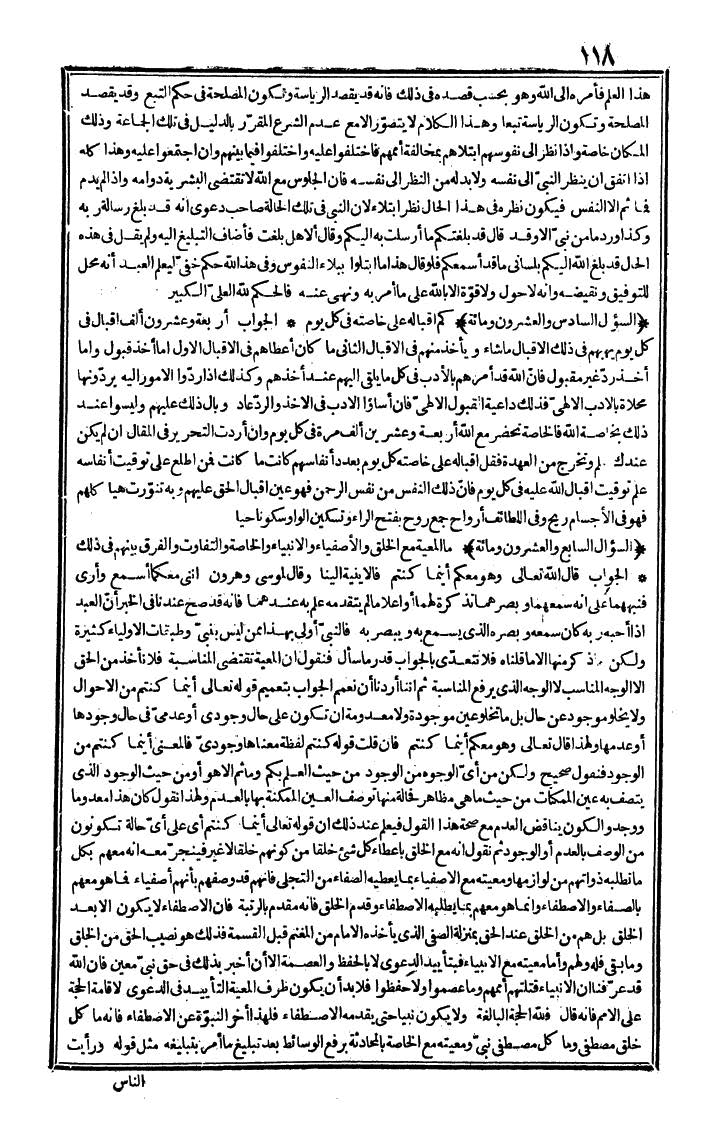 ١١٨
هذا العلم فأمره الى الله وهو بحسب قصده فى ذلك فانه قد يقصد الرياسة وتكون المصلحة فى حكم التبع وقد يقصد
المصلحة وتكون الرياسة تبعا وهذا الكلام لا يتصوّر الا مع عدم الشرع المقرّر بالدليل فى تلك الجماعة وذلك
المكان خاصة واذا نظر الى نفوسهم ابتلاهم بمخالفة أممهم فاختلفوا عليه واختلفوا فيما بينهم وان اجتمعوا عليه وهذا كله
اذا اتفق ان ينظر النبىّ الى نفسه ولا بد له من النظر الى نفسه فان الجلوس مع الله لا تقتضى البشرية دوامه واذا لم يدم
فما ثم الا النفس فيكون نظره فى هذا الحال نظر ابتلاء لان النبى فى تلك الحالة صاحب دعوى انه قد بلغ رسالة ربه
وكذا ورد ما من نبىّ الا وقد قال قد بلغتكم ما أرسلت به اليكم وقال ألا هل بلغت فأضاف التبليغ اليه ولم يقل فى هذه
الحال قد بلغ الله اليكم بلسانى ما قد أسمعكم فلو قال هذا ما ابتلوا ببلاء النفوس وفى هذا لله حكم خفىّ ليعلم العبد أنه محل
للتوفيق ونقيضه وانه لا حول ولا قوّة الا بالله على ما أمر به ونهى عنه فالحكم لله العلىّ الكبير
﴿السؤال السادس والعشرون ومائة﴾ كم اقباله على خاصته فى كل يوم * الجواب أربعة وعشرون ألف اقبال فى
كل يوم يهبهم فى ذلك الاقبال ما شاء ويأخذ منهم فى الاقبال الثانى ما كان أعطاهم فى الاقبال الاول اما أخذ قبول واما
أخذ ردّ غير مقبول فانّ الله قد أمرهم بالأدب فى كل ما يلقى اليهم عند أخذهم وكذلك اذا ردّوا الامور اليه يردّونها
محلاة بالادب الالهىّ فذلك داعية القبول الالهىّ فان أساؤا الادب فى الاخذ والردّ عاد وبال ذلك عليهم وليسوا عند
ذلك بخاصة الله فالخاصة تحضر مع الله أربعة وعشرين ألف مرة فى كل يوم وان أردت التحرير فى المقال ان لم يكن
عندك علم وتخرج من العهدة فقل اقباله على خاصته كل يوم بعدد أنفاسهم كانت ما كانت فمن اطلع على توقيت أنفاسه
علم توقيت اقبال الله عليه فى كل يوم فانّ ذلك النفس من نفس الرحمن فهو عين اقبال الحق عليهم وبه تنوّرت هيا كلهم
فهو فى الأجسام ريح وفى اللطائف أرواح جمع روح بفتح الراء وتسكين الواو سكونا حيا
﴿السؤال السابع والعشرون ومائة﴾ ما المعية مع الخلق والأصفياء والانبياء والخاصة والتفاوت والفرق بينهم فى ذلك
* الجواب قال الله تعالى وهو معكم أينما كنتم فالاينية الينا وقال لموسى وهرون اننى معكما أسمع وأرى
فنبههما على انه سمعهما وبصرهما تذكرة لهما أو اعلاما لم يتقدمه علم به عندهما فانه قد صح عندنا فى الخبر أنّ العبد
اذا أحبه ربه كان سمعه وبصره الذى يسمع به ويبصر به فالنبىّ أولى بهذا ممن ليس بنبىّ وطبقات الاولياء كثيرة
ولكن ما ذكر منها الا ما قلناه فلا نتعدّى بالجواب قدر ما سأل فنقول ان المعية تقتضى المناسبة فلا نأخذ من الحق
الا الوجه المناسب لا الوجه الذى يرفع المناسبة ثم اننا أردنا أن نعمم الجواب بتعميم قوله تعالى أينما كنتم من الاحوال
ولا يخلو موجود عن حال بل ما تخلو عين موجودة ولا معدومة ان تكون على حال وجودى أو عدمىّ فى حال وجودها
أو عدمها ولهذا قال تعالى وهو معكم أينما كنتم فان قلت قوله كنتم لفظة معناها وجودىّ فالمعنى أينما كنتم من
الوجود فنقول صحيح ولكن من أىّ الوجوه من الوجود من حيث العلم بكم وما ثم الا هو أو من حيث الوجود الذى
يتصف به عين الممكنات من حيث ما هى مظاهر فحالة منها توصف العين الممكنة بها بالعدم ولهذا نقول كان هذا معدوما
ووجد والكون يناقض العدم مع صحة هذا القول فيعلم عند ذلك ان قوله تعالى أينما كنتم أى على أىّ حالة تكونون
من الوصف بالعدم أو الوجود ثم نقول انه مع الخلق باعطاء كل شئ خلقا من كونهم خلقا لا غير فينجرّ معه انه معهم بكل
ما تطلبه ذواتهم من لوازمها ومعيته مع الاصفياء بما يعطيه الصفاء من التجلى فانهم قد وصفهم بأنهم أصفياء فما هو معهم
بالصفاء والاصطفاء وانما هو معهم بما يطلبه الاصطفاء وقدم الخلق فانه مقدم بالرتبة فان الاصطفاء لا يكون الا بعد
الخلق بل هم من الخلق عند الحق بمنزلة الصفىّ الذى يأخذه الامام من المغنم قبل القسمة فذلك هو نصيب الحق من الخلق
وما بقى فله ولهم وأما معيته مع الانبياء فبتأييد الدعوى لا بالحفظ والعصمة الا أن أخبر بذلك فى حق نبىّ معين فان الله
قد عرّفنا ان الانبياء قتلتهم أممهم وما عصموا ولا حفظوا فلا بد أن يكون ظرف المعية التأييد فى الدعوى لاقامة الحجة
على الامم فانه قال فلله الحجة البالغة ولا يكون نبيا حتى يقدمه الاصطفاء فلهذا أخر النبوّة عن الاصطفاء فانه ما كل
خلق مصطفى وما كل مصطفى نبىّ ومعيته مع الخاصة بالمحادثة برفع الوسائط بعد تبليغ ما أمر بتبليغه مثل قوله ورأيت
الناس